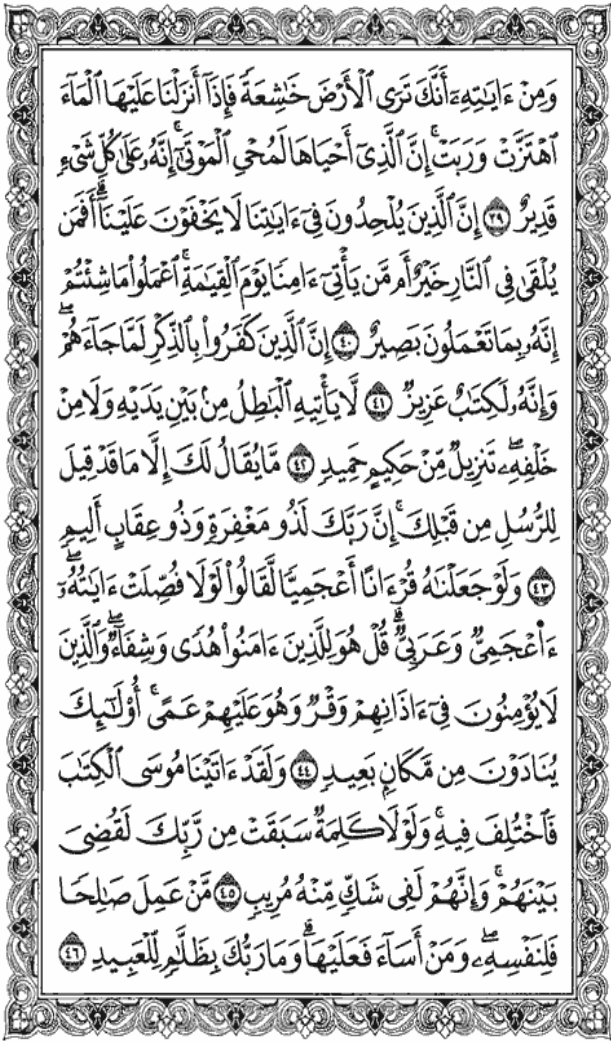 وَمِنْ ءَايَـٰتِهِۦٓ أَنَّكَ تَرَى ٱلْأَرْضَ خَـٰشِعَةً فَإِذَآ أَنزَلْنَا عَلَيْهَا ٱلْمَآءَ
ٱهْتَزَّتْ وَرَبَتْ ۚ إِنَّ ٱلَّذِىٓ أَحْيَاهَا لَمُحْىِ ٱلْمَوْتَىٰٓ ۚ إِنَّهُۥ عَلَىٰ كُلِّ شَىْءٍ
قَدِيرٌ ٣٩ إِنَّ ٱلَّذِينَ يُلْحِدُونَ فِىٓ ءَايَـٰتِنَا لَا يَخْفَوْنَ عَلَيْنَآ ۗ أَفَمَن
يُلْقَىٰ فِى ٱلنَّارِ خَيْرٌ أَم مَّن يَأْتِىٓ ءَامِنًا يَوْمَ ٱلْقِيَـٰمَةِ ۚ ٱعْمَلُوا۟ مَا شِئْتُمْ ۖ
إِنَّهُۥ بِمَا تَعْمَلُونَ بَصِيرٌ ٤٠ إِنَّ ٱلَّذِينَ كَفَرُوا۟ بِٱلذِّكْرِ لَمَّا جَآءَهُمْ ۖ
وَإِنَّهُۥ لَكِتَـٰبٌ عَزِيزٌ ٤١ لَّا يَأْتِيهِ ٱلْبَـٰطِلُ مِنۢ بَيْنِ يَدَيْهِ وَلَا مِنْ
خَلْفِهِۦ ۖ تَنزِيلٌ مِّنْ حَكِيمٍ حَمِيدٍ ٤٢ مَّا يُقَالُ لَكَ إِلَّا مَا قَدْ قِيلَ
لِلرُّسُلِ مِن قَبْلِكَ ۚ إِنَّ رَبَّكَ لَذُو مَغْفِرَةٍ وَذُو عِقَابٍ أَلِيمٍ
٤٣ وَلَوْ جَعَلْنَـٰهُ قُرْءَانًا أَعْجَمِيًّا لَّقَالُوا۟ لَوْلَا فُصِّلَتْ ءَايَـٰتُهُۥٓ ۖ
ءَا۬عْجَمِىٌّ وَعَرَبِىٌّ ۗ قُلْ هُوَ لِلَّذِينَ ءَامَنُوا۟ هُدًى وَشِفَآءٌ ۖ وَٱلَّذِينَ
لَا يُؤْمِنُونَ فِىٓ ءَاذَانِهِمْ وَقْرٌ وَهُوَ عَلَيْهِمْ عَمًى ۚ أُو۟لَـٰٓئِكَ
يُنَادَوْنَ مِن مَّكَانٍۭ بَعِيدٍ ٤٤ وَلَقَدْ ءَاتَيْنَا مُوسَى ٱلْكِتَـٰبَ
فَٱخْتُلِفَ فِيهِ ۗ وَلَوْلَا كَلِمَةٌ سَبَقَتْ مِن رَّبِّكَ لَقُضِىَ
بَيْنَهُمْ ۚ وَإِنَّهُمْ لَفِى شَكٍّ مِّنْهُ مُرِيبٍ ٤٥ مَّنْ عَمِلَ صَـٰلِحًا
فَلِنَفْسِهِۦ ۖ وَمَنْ أَسَآءَ فَعَلَيْهَا ۗ وَمَا رَبُّكَ بِظَلَّـٰمٍ لِّلْعَبِيدِ ٤٦